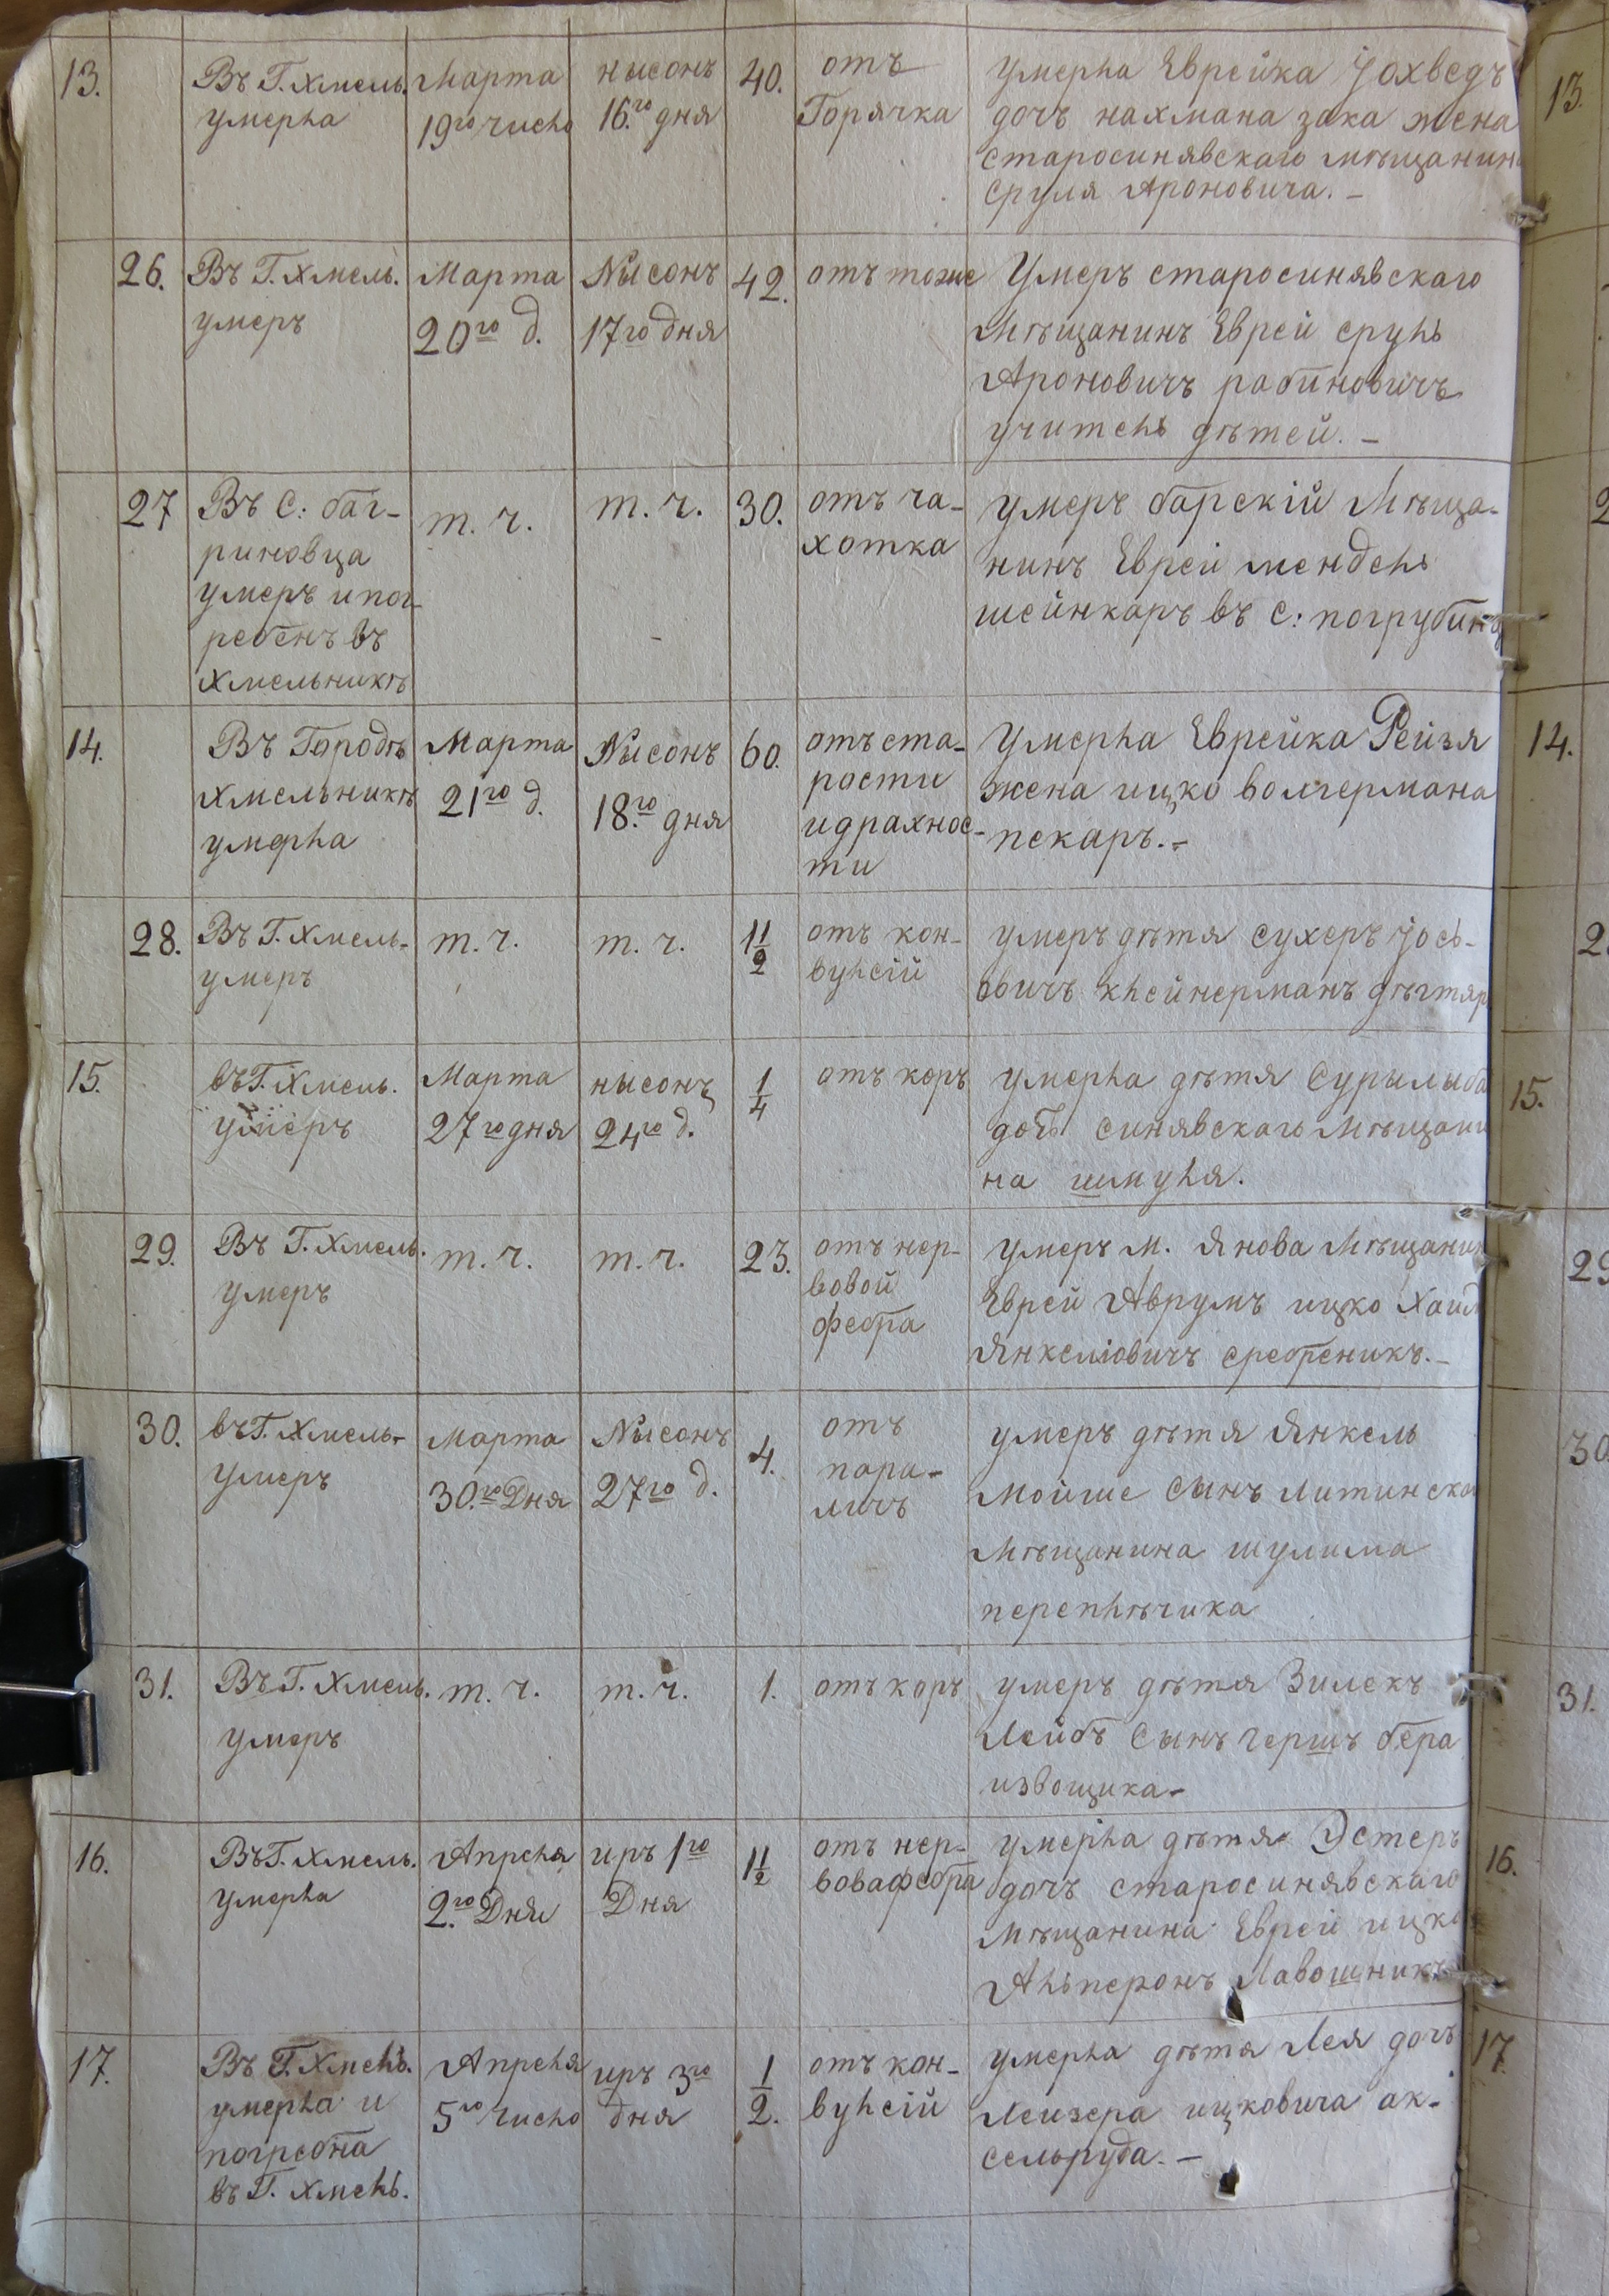 13.
Въ Г. Хмель.
умерла
Марта
19го число
нысонъ
16.го дня
40.
отъ
Горячка
умерла Еврейка Іохведъ
дочъ нахмана зака жена
старосинявскаго мѣщанина
сруля Ароновича. –
26.
Въ Г. Хмель.
умеръ
Марта
20го д.
Нысонъ
17го дня
42.
отъ тоже
Умеръ старосинявскаго
Мѣщанинъ Еврей сруль
Ароновичъ рабиновичъ
учитель дѣтей. –
27
Въ С: баг-
риновца
умеръ и пог-
ребенъ въ
Хмельникѣ
т. ч.
т. ч.
30.
отъ ча-
хотка
умеръ барскій Мѣща-
нинъ Еврей мендель
шейнкаръ въ с:
14.
Въ Городѣ
Хмельникѣ
умерла
Марта
21го д.
Нысонъ
18.го дня
60.
отъ ста-
рости
и драхнос-
ти
Умерла Еврейка Рейзя
жена ицко волгермана
пекаръ. –
28.
Въ Г. Хмель-
умеръ
т. ч.
т. ч.
1 1/2
отъ кон-
вулсій
умеръ дѣтя сухеръ Іось-
овичъ клейнерманъ дѣгтяр
15.
въ Г. Хмель.
умеръ
Марта
27го дня
нысонъ
24го д.
1/4
отъ коръ
умерла дѣтя Сурылыба
дочь синявскаго Мѣщани
на шмуля.
29.
Въ Г. Хмель.
умеръ
т. ч.
т. ч.
23.
отъ нер-
вовой
фебра
умеръ м. Янова Мѣщанин
Еврей Аврумъ ицко
Янкелювичъ сребреникъ. –
30.
въ Г. Хмель-
умеръ
Марта
30.го Дня
Нысонъ
27го д.
4.
отъ
пара-
личъ
умеръ дѣтя Янкель
Мойше Сынъ Литинска
Мѣщанина шулима
переплѣчика
31.
Въ Г. Хмель.
умеръ
т. ч.
т. ч.
1.
отъ коръ
умеръ дѣтя Зилекъ
Лейбъ Сынъ гершъ бера
извощика –
16.
Въ Г. Хмель.
умерла
Апреля
2.го Дня
иръ 1го
Дня
1 1/2
отъ нер-
вова фебра
умерла дѣтя Эстеръ
дочъ старосинявскаго
Мѣщанина Еврей ицко
Альперонъ Лавошникъ
17.
Въ Г. Хмель.
умерла и
погребна
въ Г. Хмель.
Апреля
5го число
иръ 3го
дня
1/2.
отъ кон-
вулсій
умерла дѣтя Лея дочъ
Лейзера ицковича ак-
сельруда. –
13.
14.
15.
29
30
31.
16.
17.